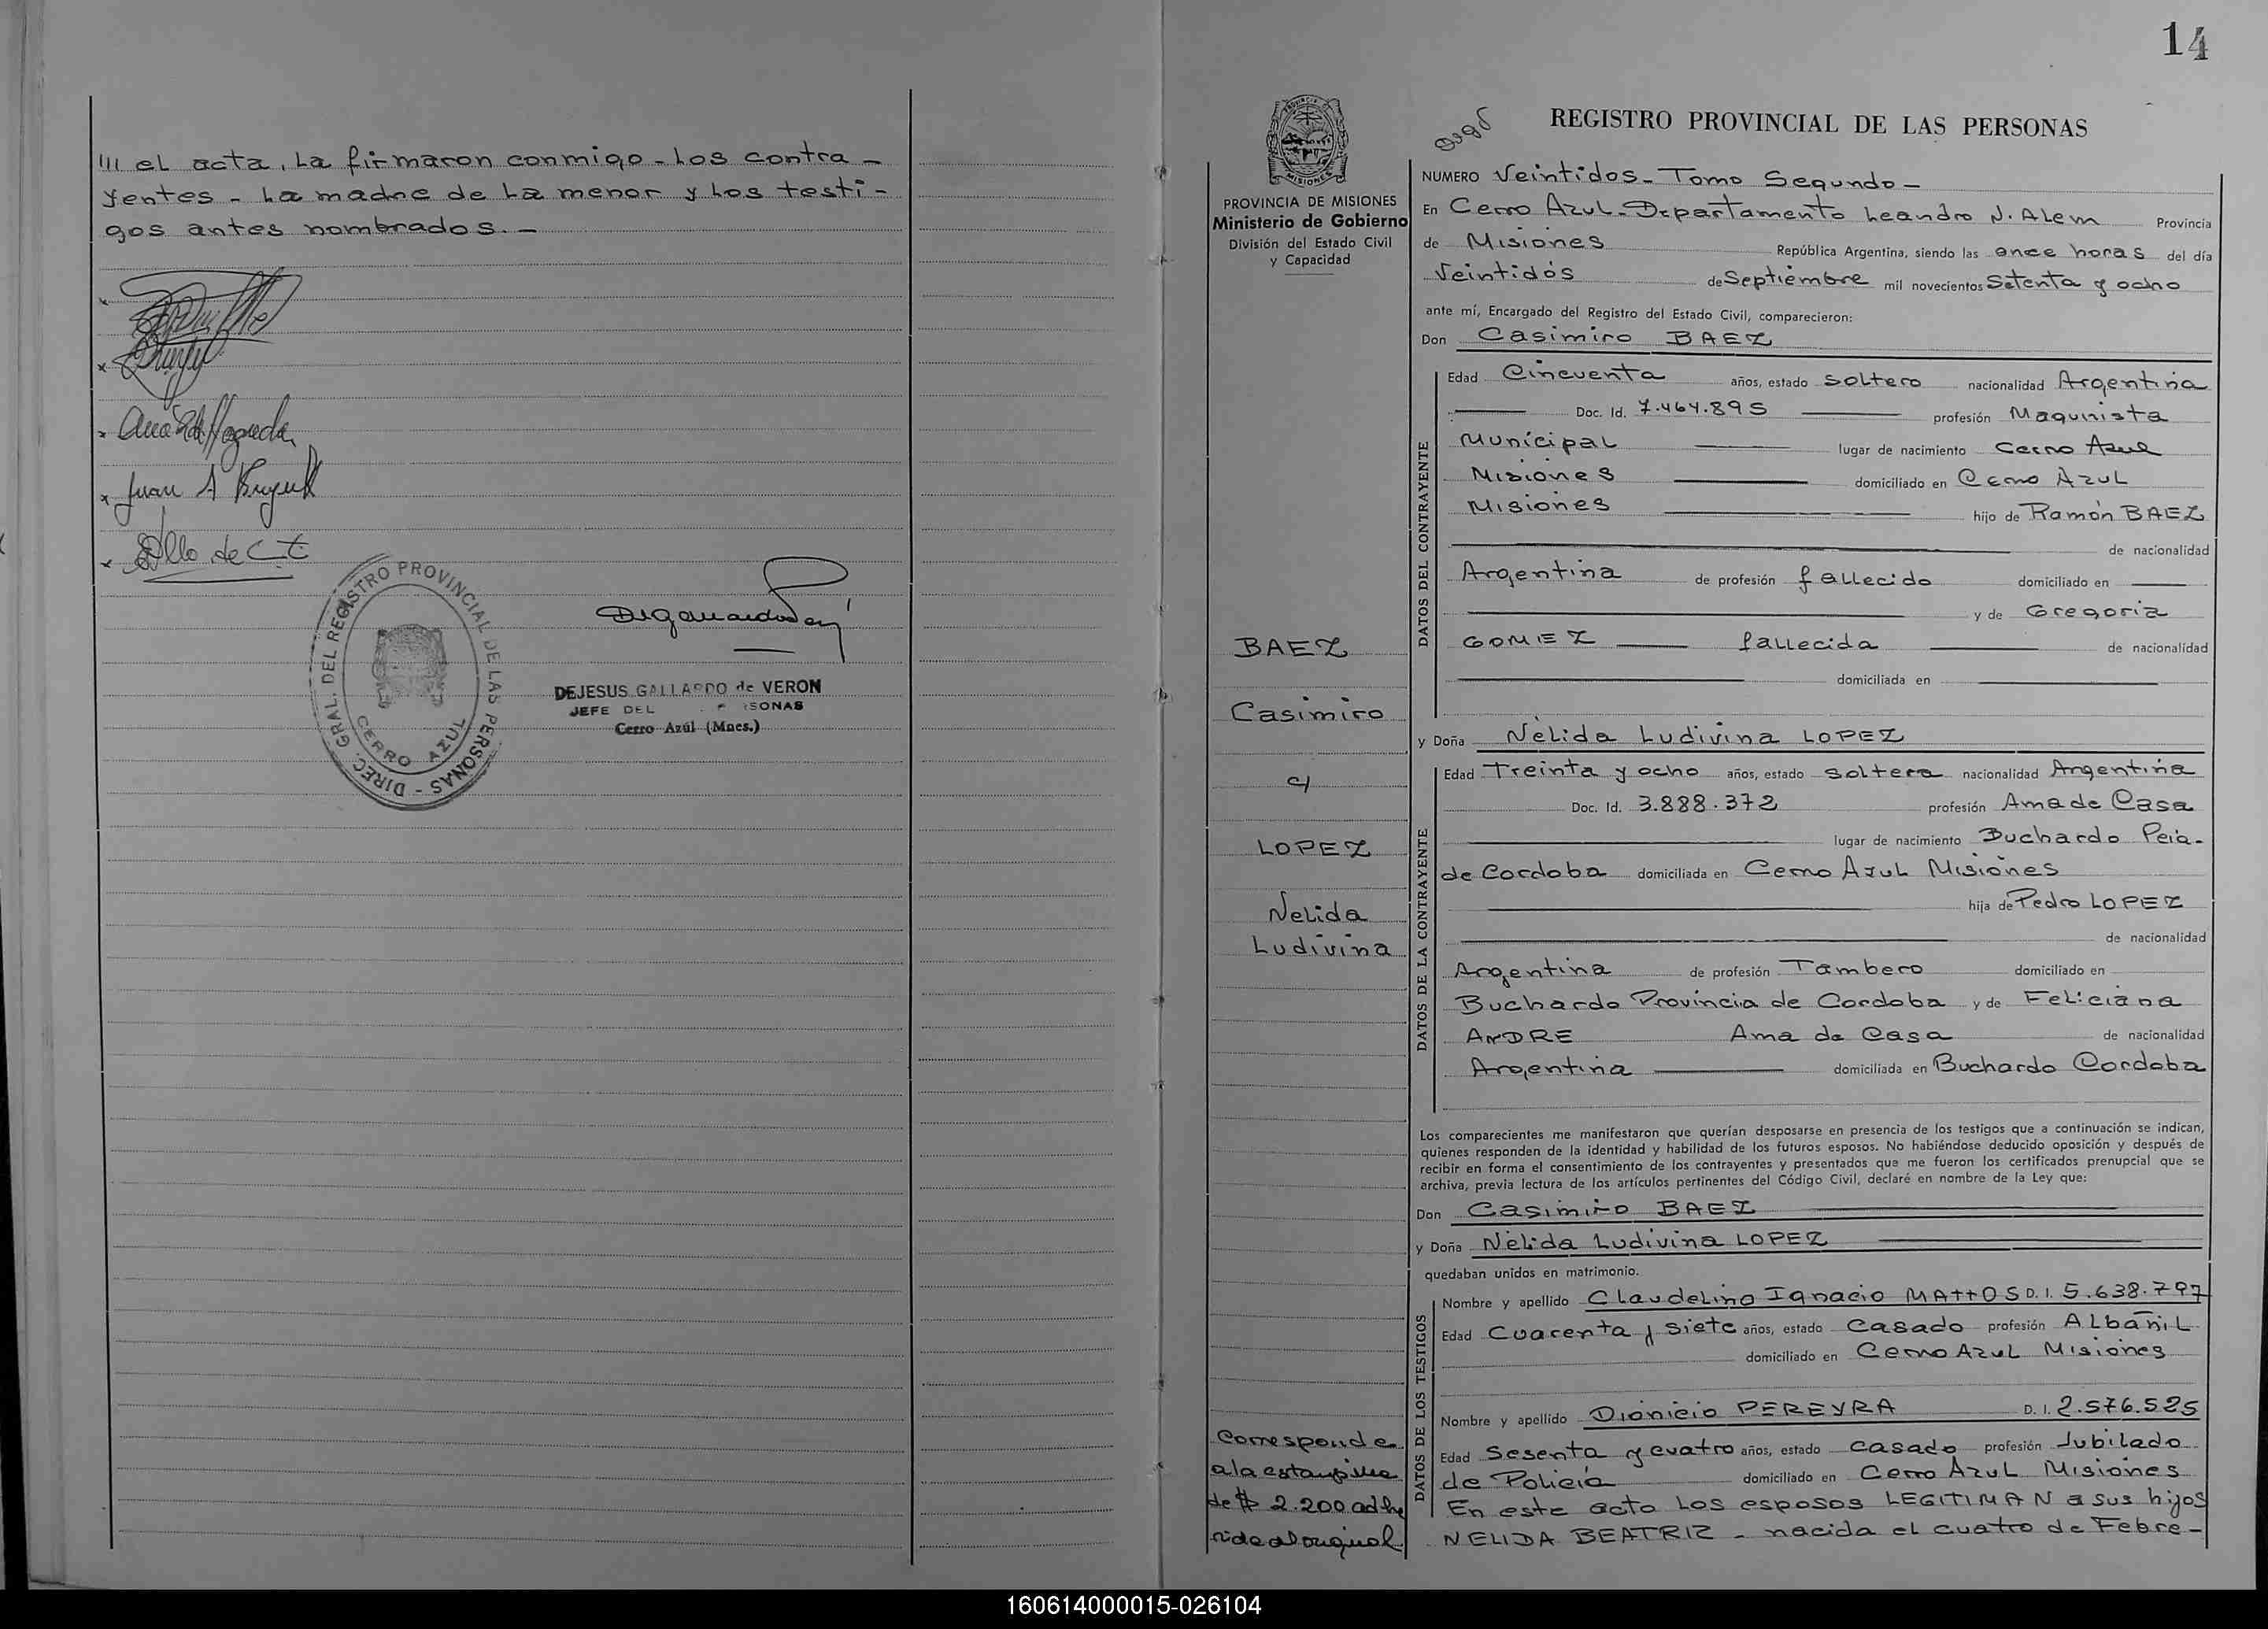 14
/// el acta, La firmaron conmigo - Los contra -
yentes - La madre de La menor y Los testi -
gos antes nombrados. -
Juan A
DIREC. GRAL. DEL REGISTRO PROVINCIAL DE LAS PERSONAS -
CERRO AZUL
DEJESUS GALLARDO de VERON
JEFE DEL
Cerro Azúl (Mnes.)
PROVINCIA DE MISIONES
Ministerio de Gobierno
División del Estado Civil
y Capacidad
BAEZ
Casimiro
c/
LOPEZ
Nelida
Ludivina
Corresponde
a la estampilla
de $ 2.200 adhe
rida al original
REGISTRO PROVINCIAL DE LAS PERSONAS
NUMERO Veintidos - Tomo Segundo -
En Cerro Azul - Departamento Leandro N. Alem Provincia
de Misiones República Argentina, siendo las once horas del día
Veintidós de Septiembre mil novecientos Setenta y ocho
ante mí, Encargado del Registro del Estado Civil, comparecieron:
Don Casimiro BAEZ
DATOS DEL CONTRAYENTE
Edad Cincuenta años, estado soltero nacionalidad Argentina
Doc. Id. 7.464.895 profesión Maquinista
Municipal lugar de nacimiento Cerro Azul
Misiones domiciliado en Cerro Azul
Misiones hijo de Ramón BAEZ
de nacionalidad
Argentina de profesión fallecido domiciliado en
y de Gregoria
GOMEZ fallecida de nacionalidad
domiciliada en
y Doña Nélida Ludivina LOPEZ
DATOS DE LA CONTRAYENTE
Edad Treinta y ocho años, estado soltera nacionalidad Argentina
Doc. Id. 3.888.372 profesión Ama de Casa
lugar de nacimiento Buchardo Pcia.
de Cordoba domiciliada en Cerro Azul Misiones
hija de Pedro LOPEZ
de nacionalidad
Argentina de profesión Tambero domiciliado en
Buchardo Provincia de Cordoba y de Feliciana
ANDRE Ama de Casa de nacionalidad
Argentina domiciliada en Buchardo Cordoba
Los comparecientes me manifestaron que querían desposarse en presencia de los testigos que a continuación se indican,
quienes responden de la identidad y habilidad de los futuros esposos. No habiéndose deducido oposición y después de
recibir en forma el consentimiento de los contrayentes y presentados que me fueron los certificados prenupcial que se
archiva, previa lectura de los artículos pertinentes del Código Civil, declaré en nombre de la Ley que:
Don Casimiro BAEZ
y Doña Nélida Ludivina LOPEZ
quedaban unidos en matrimonio.
DATOS DE LOS TESTIGOS
Nombre y apellido Claudelino Ignacio MATTOS D. I. 5.638.797
Edad Cuarenta y siete años, estado Casado profesión Albañil
domiciliado en Cerro Azul Misiones
Nombre y apellido Dionicio PEREYRA D. I. 2.576.525
Edad Sesenta y cuatro años, estado casado profesión Jubilado
de Policía domiciliado en Cerro Azul Misiones
En este acto Los esposos LEGITIMAN a sus hijos
NELIDA BEATRIZ - nacida el cuatro de Febre -
160614000015-026104